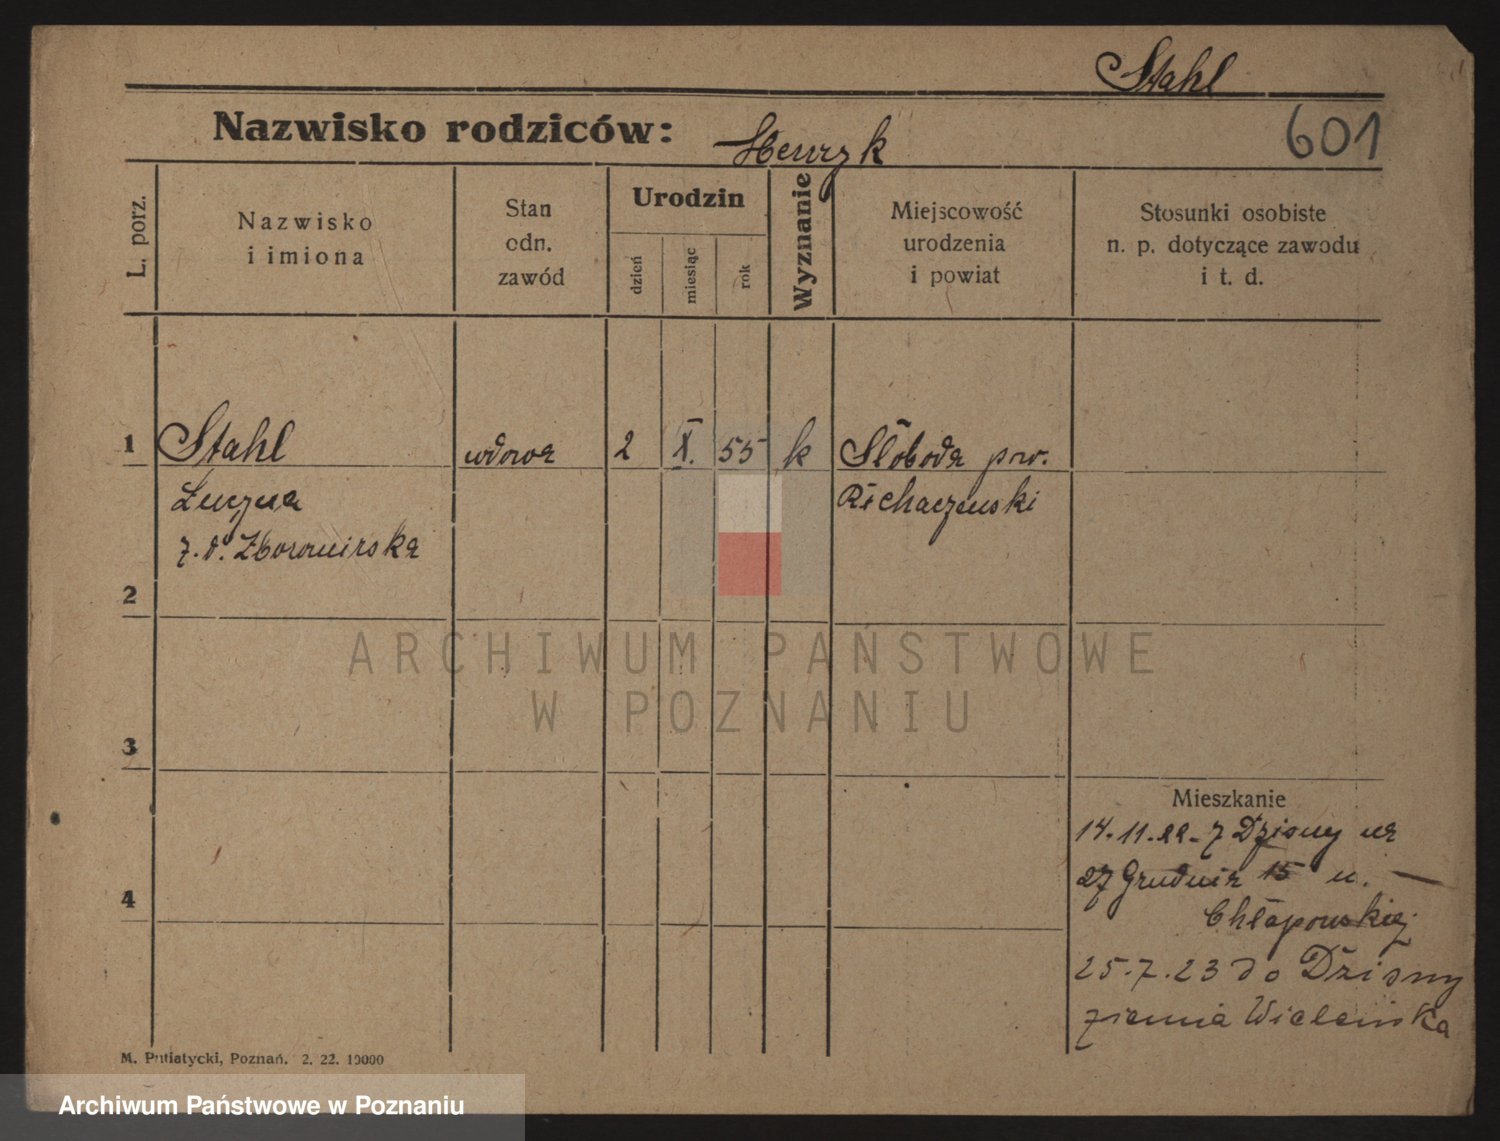 Stahl
Nazwisko rodziców: Henryk
601
L. porz.
Nazwisko
i imiona
Stan
odn.
zawód
Urodzin
dzień
miesiąc
rok
Wyznanie
Miejscowość
urodzenia
i powiat
Stosunki osobiste
n. p. dotyczące zawodu
i t. d.
1 Stahl wdowa 2 X. 55 k Słoboda pow.
Lucyna
z. d.
2
3
4
Mieszkanie
14.11.22 - z Dzisny na
27 Grudnia 15 u.
Chłapowskiej
25.7.23 do Dzisny
ziemia Wileńska
M. Putiatycki, Poznań. 2. 22. 10000
ARCHIWUM PAŃSTWOWE
W POZNANIU
Archiwum Państwowe w Poznaniu